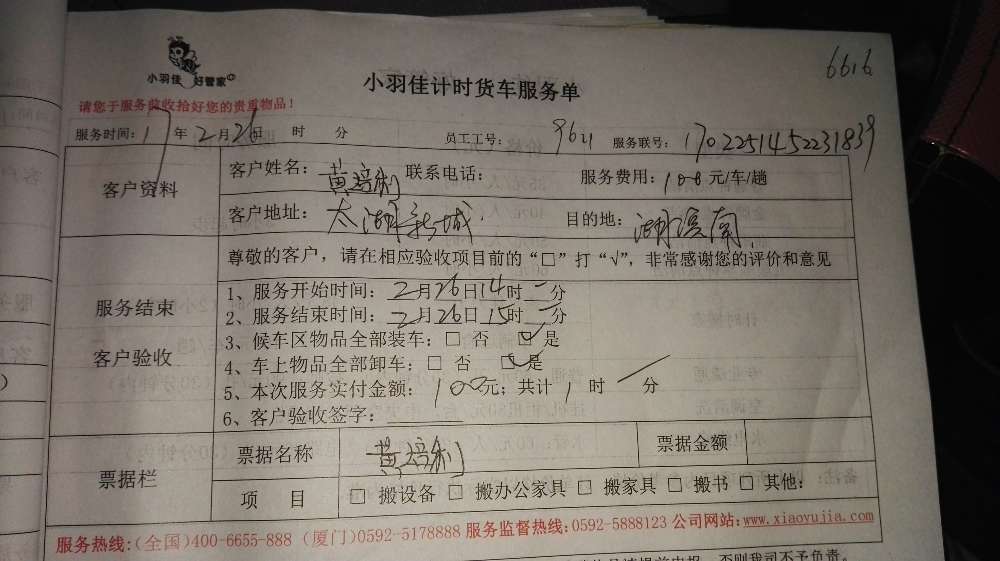 6616
小羽佳 好管家
小羽佳计时货车服务单
请您于服务验收拾好您的贵重物品！
服务时间：17年2月26日 时 分 员工工号：9621 服务联号：1702251452231839
客户资料 客户姓名：黄培利 联系电话： 服务费用：100元/车/趟
客户地址：太湖新城 目的地：湖滨南
尊敬的客户，请在相应验收项目前的“□”打“√”，非常感谢您的评价和意见
服务结束 客户验收
1、服务开始时间：2月26日14时 分
2、服务结束时间：2月26日15时 分
3、候车区物品全部装车：□ 否 ☑ 是
4、车上物品全部卸车：□ 否 ☑ 是
5、本次服务实付金额：100元；共计1时 分
6、客户验收签字：
票据栏 票据名称 黄培利 票据金额
项 目 □ 搬设备 □ 搬办公家具 □ 搬家具 □ 搬书 □ 其他：
服务热线:(全国)400-6655-888 (厦门)0592-5178888 服务监督热线:0592-5888123 公司网站:www.xiaoyujia.com
否则我司不予负责。